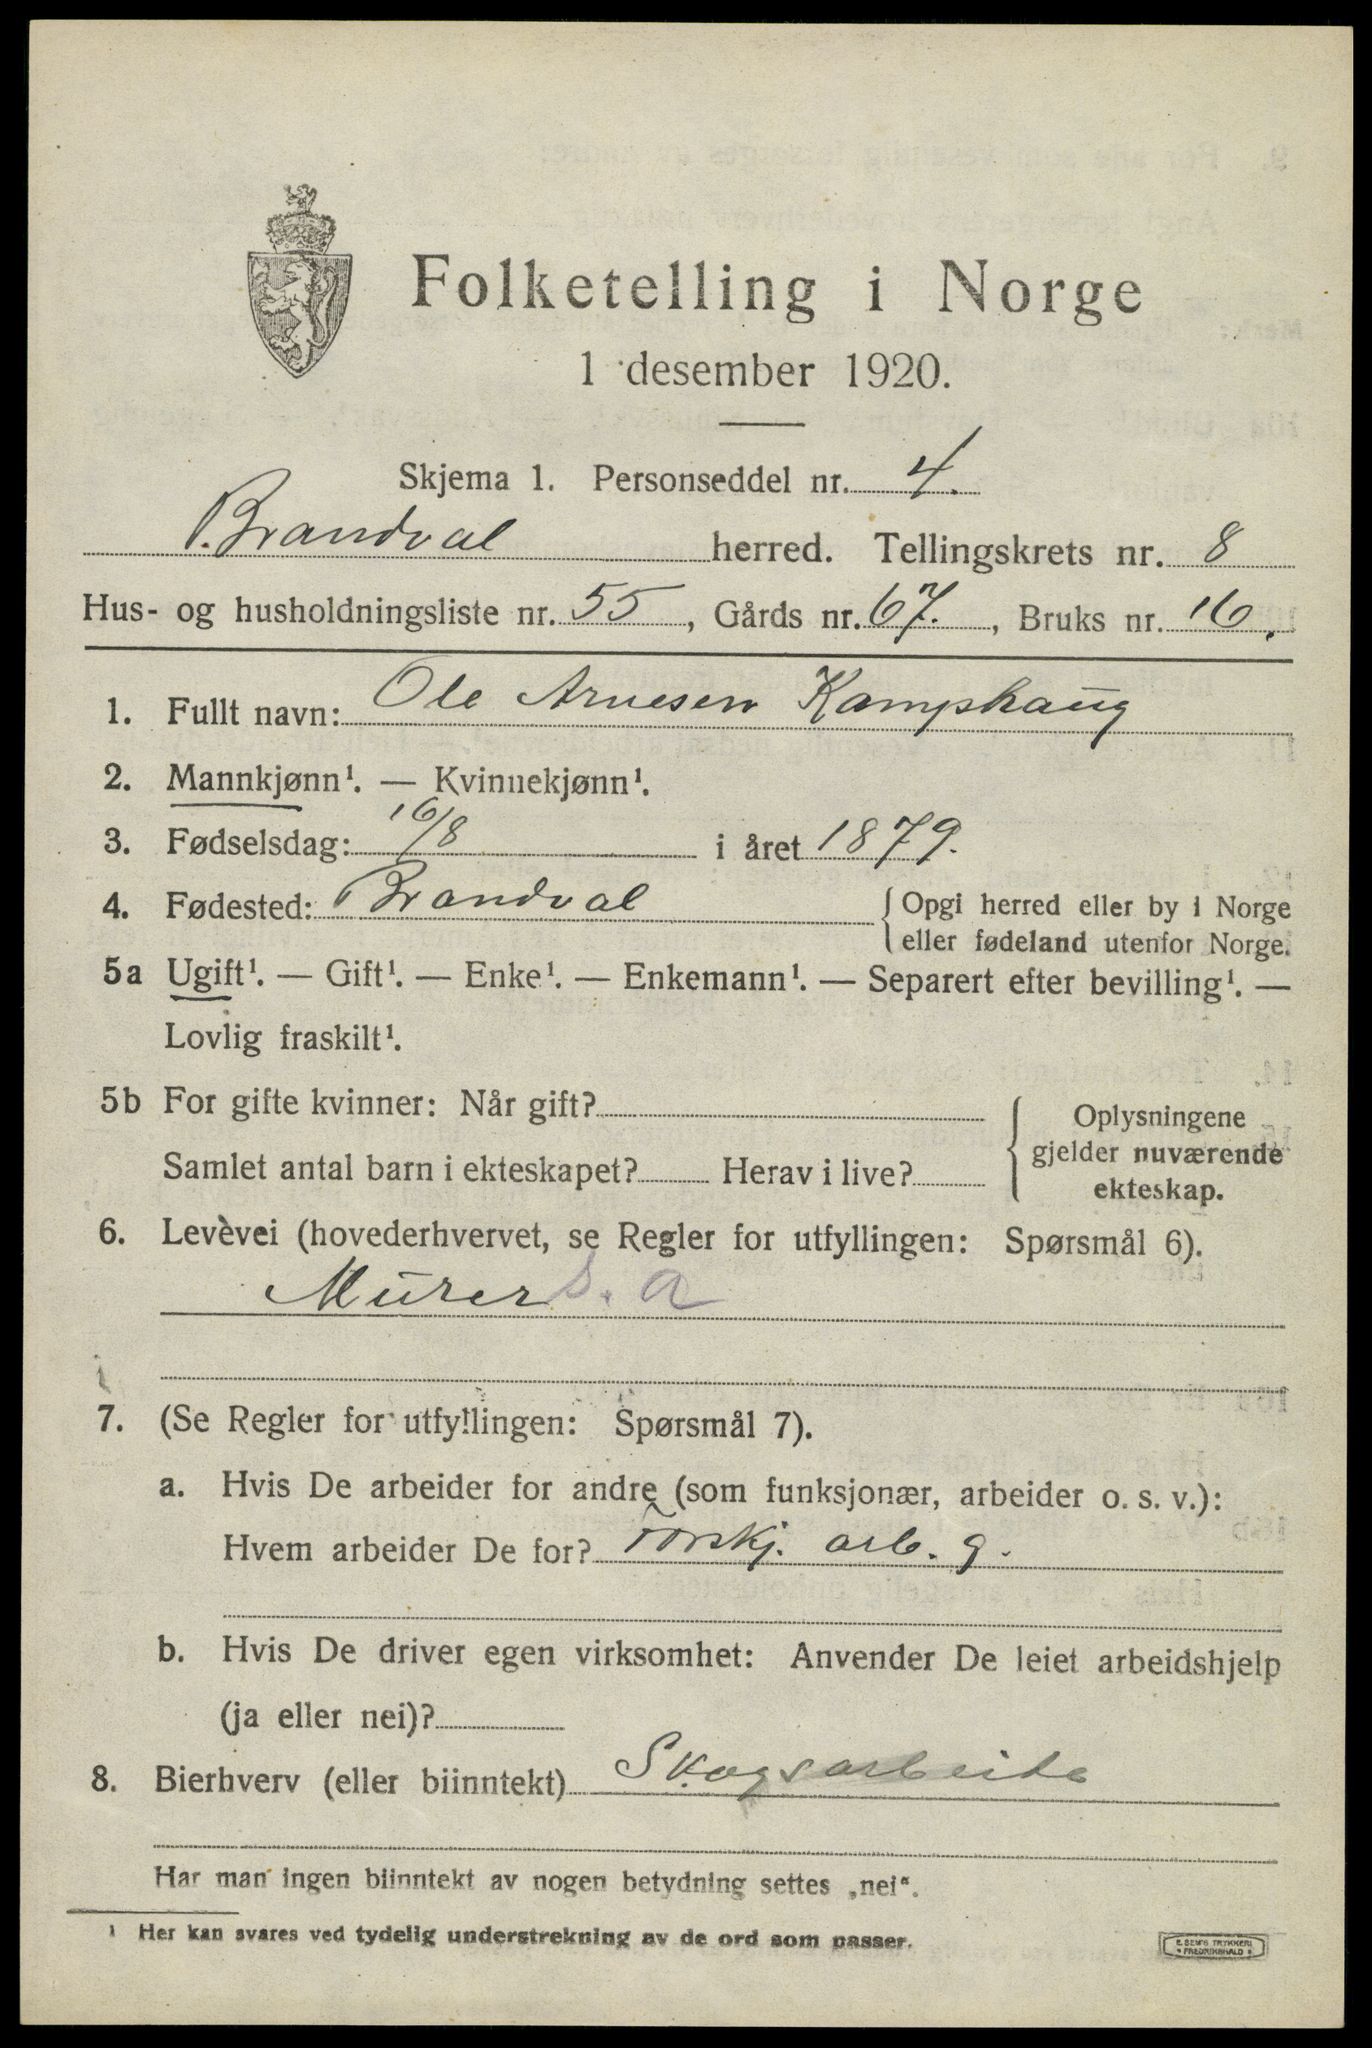 Folketelling i Norge
1 desember 1920.
Skjema 1. Personseddel nr. 4.
Brandval herred. Tellingskrets nr. 8
Hus- og husholdningsliste nr. 55, Gårds nr. 67., Bruks nr. 16.
1. Fullt navn: Ole Arnesen Kamphaug
2. Mannkjønn¹. — Kvinnekjønn¹.
3. Fødselsdag: 16/8 i året 1879.
4. Fødested: Brandval { Opgi herred eller by i Norge
eller fødeland utenfor Norge.
5a Ugift¹. — Gift¹. — Enke¹. — Enkemann¹. — Separert efter bevilling¹. —
Lovlig fraskilt¹.
5b For gifte kvinner: Når gift?
Samlet antal barn i ekteskapet? Herav i live?
Oplysningene
gjelder nuværende
ekteskap.
6. Levevei (hovederhvervet, se Regler for utfyllingen: Spørsmål 6).
Murer s. a
7. (Se Regler for utfyllingen: Spørsmål 7).
a. Hvis De arbeider for andre (som funksjonær, arbeider o. s. v.):
Hvem arbeider De for? Forskj. arb. g.
b. Hvis De driver egen virksomhet: Anvender De leiet arbeidshjelp
(ja eller nei)?
8. Bierhverv (eller biinntekt) Skogsarbeide
Har man ingen biinntekt av nogen betydning settes „nei“.
¹ Her kan svares ved tydelig understrekning av de ord som passer.
E. SEM'S TRYKKERI
FREDRIKSHALD